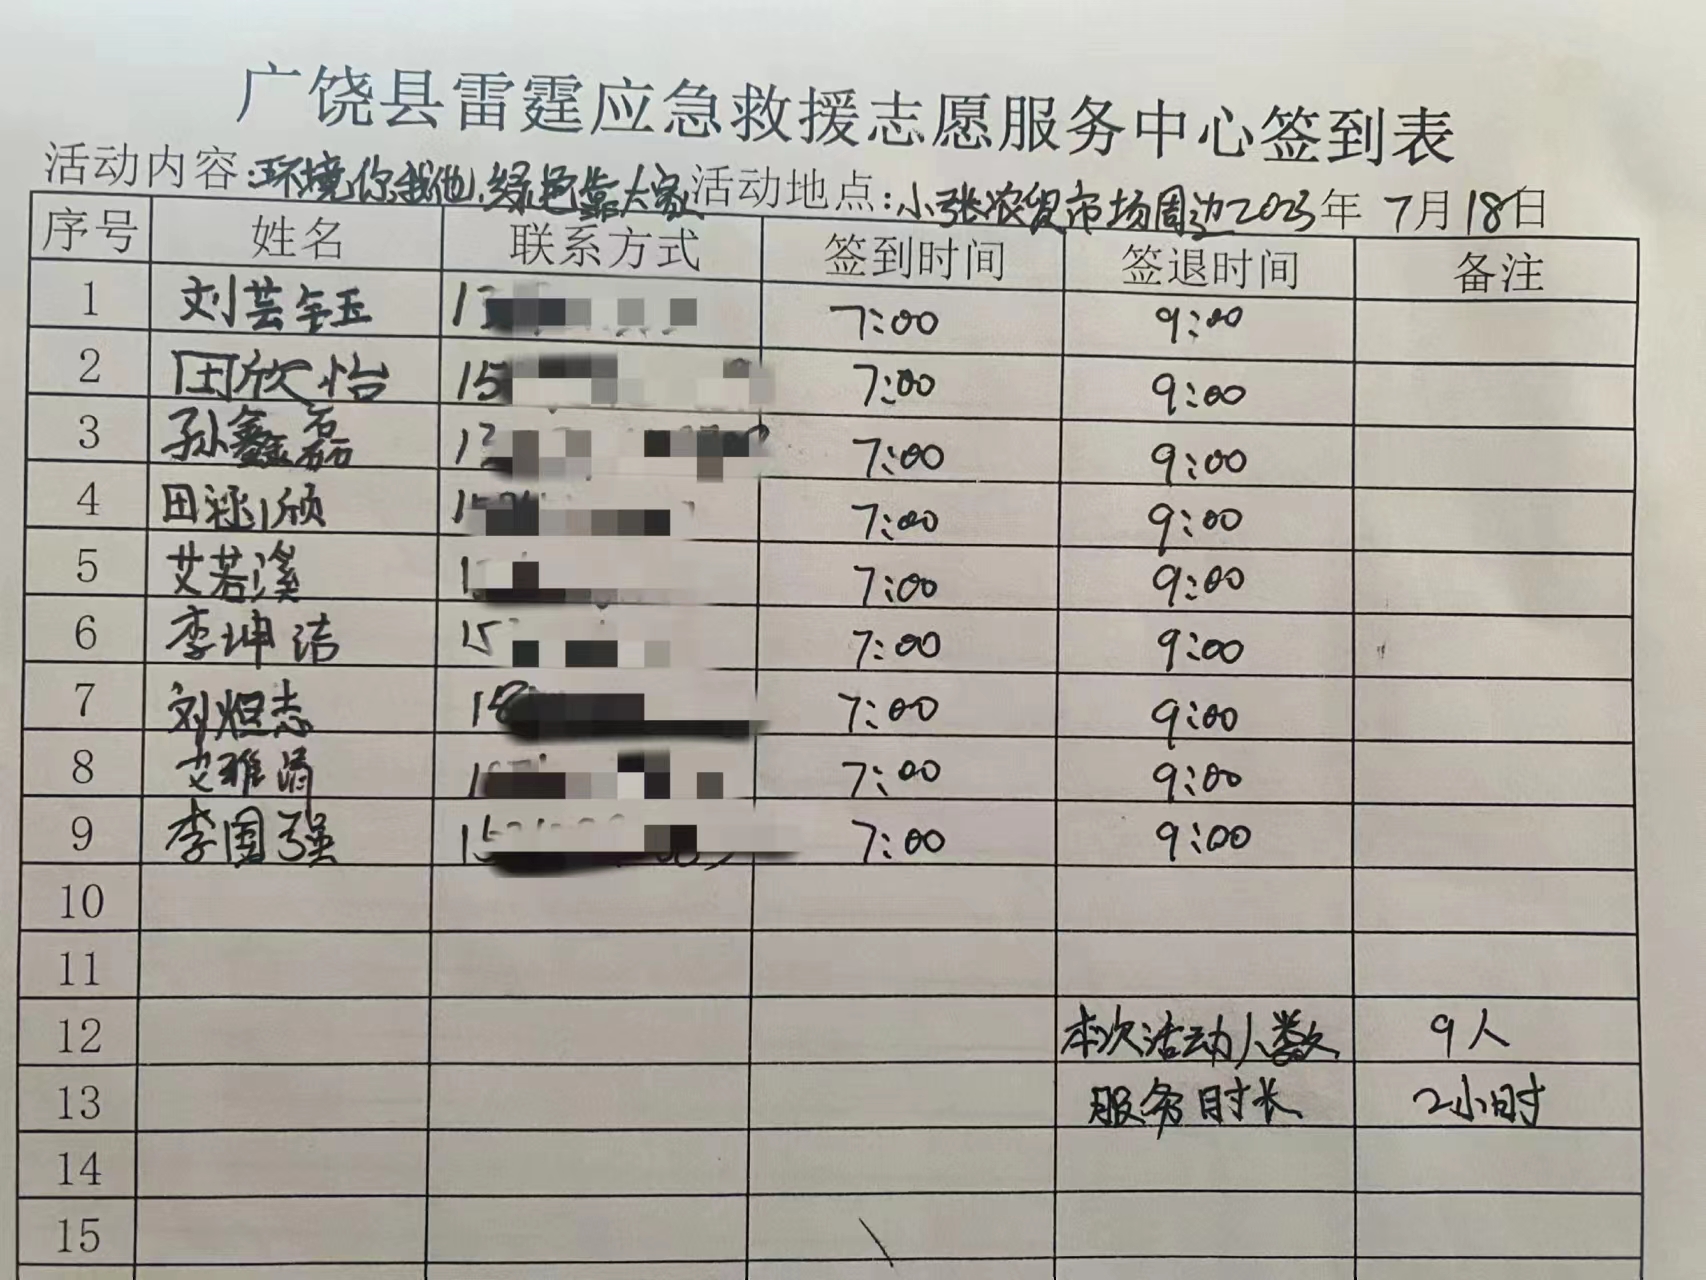 广饶县雷霆应急救援志愿服务中心签到表
活动内容:环境你我他,绿色靠大家 活动地点:小张农贸市场周边 2023年 7月18日
序号 姓名 联系方式 签到时间 签退时间 备注
1 刘芸钰 1 7:00 9:00
2 田欣怡 15 7:00 9:00
3 孙鑫磊 1 7:00 9:00
4 田 颀 15 7:00 9:00
5 艾若溪 1 7:00 9:00
6 李坤洁 15 7:00 9:00
7 刘烜志 7:00 9:00
8 艾雅 7:00 9:00
9 李国强 15 7:00 9:00
10
11
12 本次活动人数 9人
13 服务时长 2小时
14
15